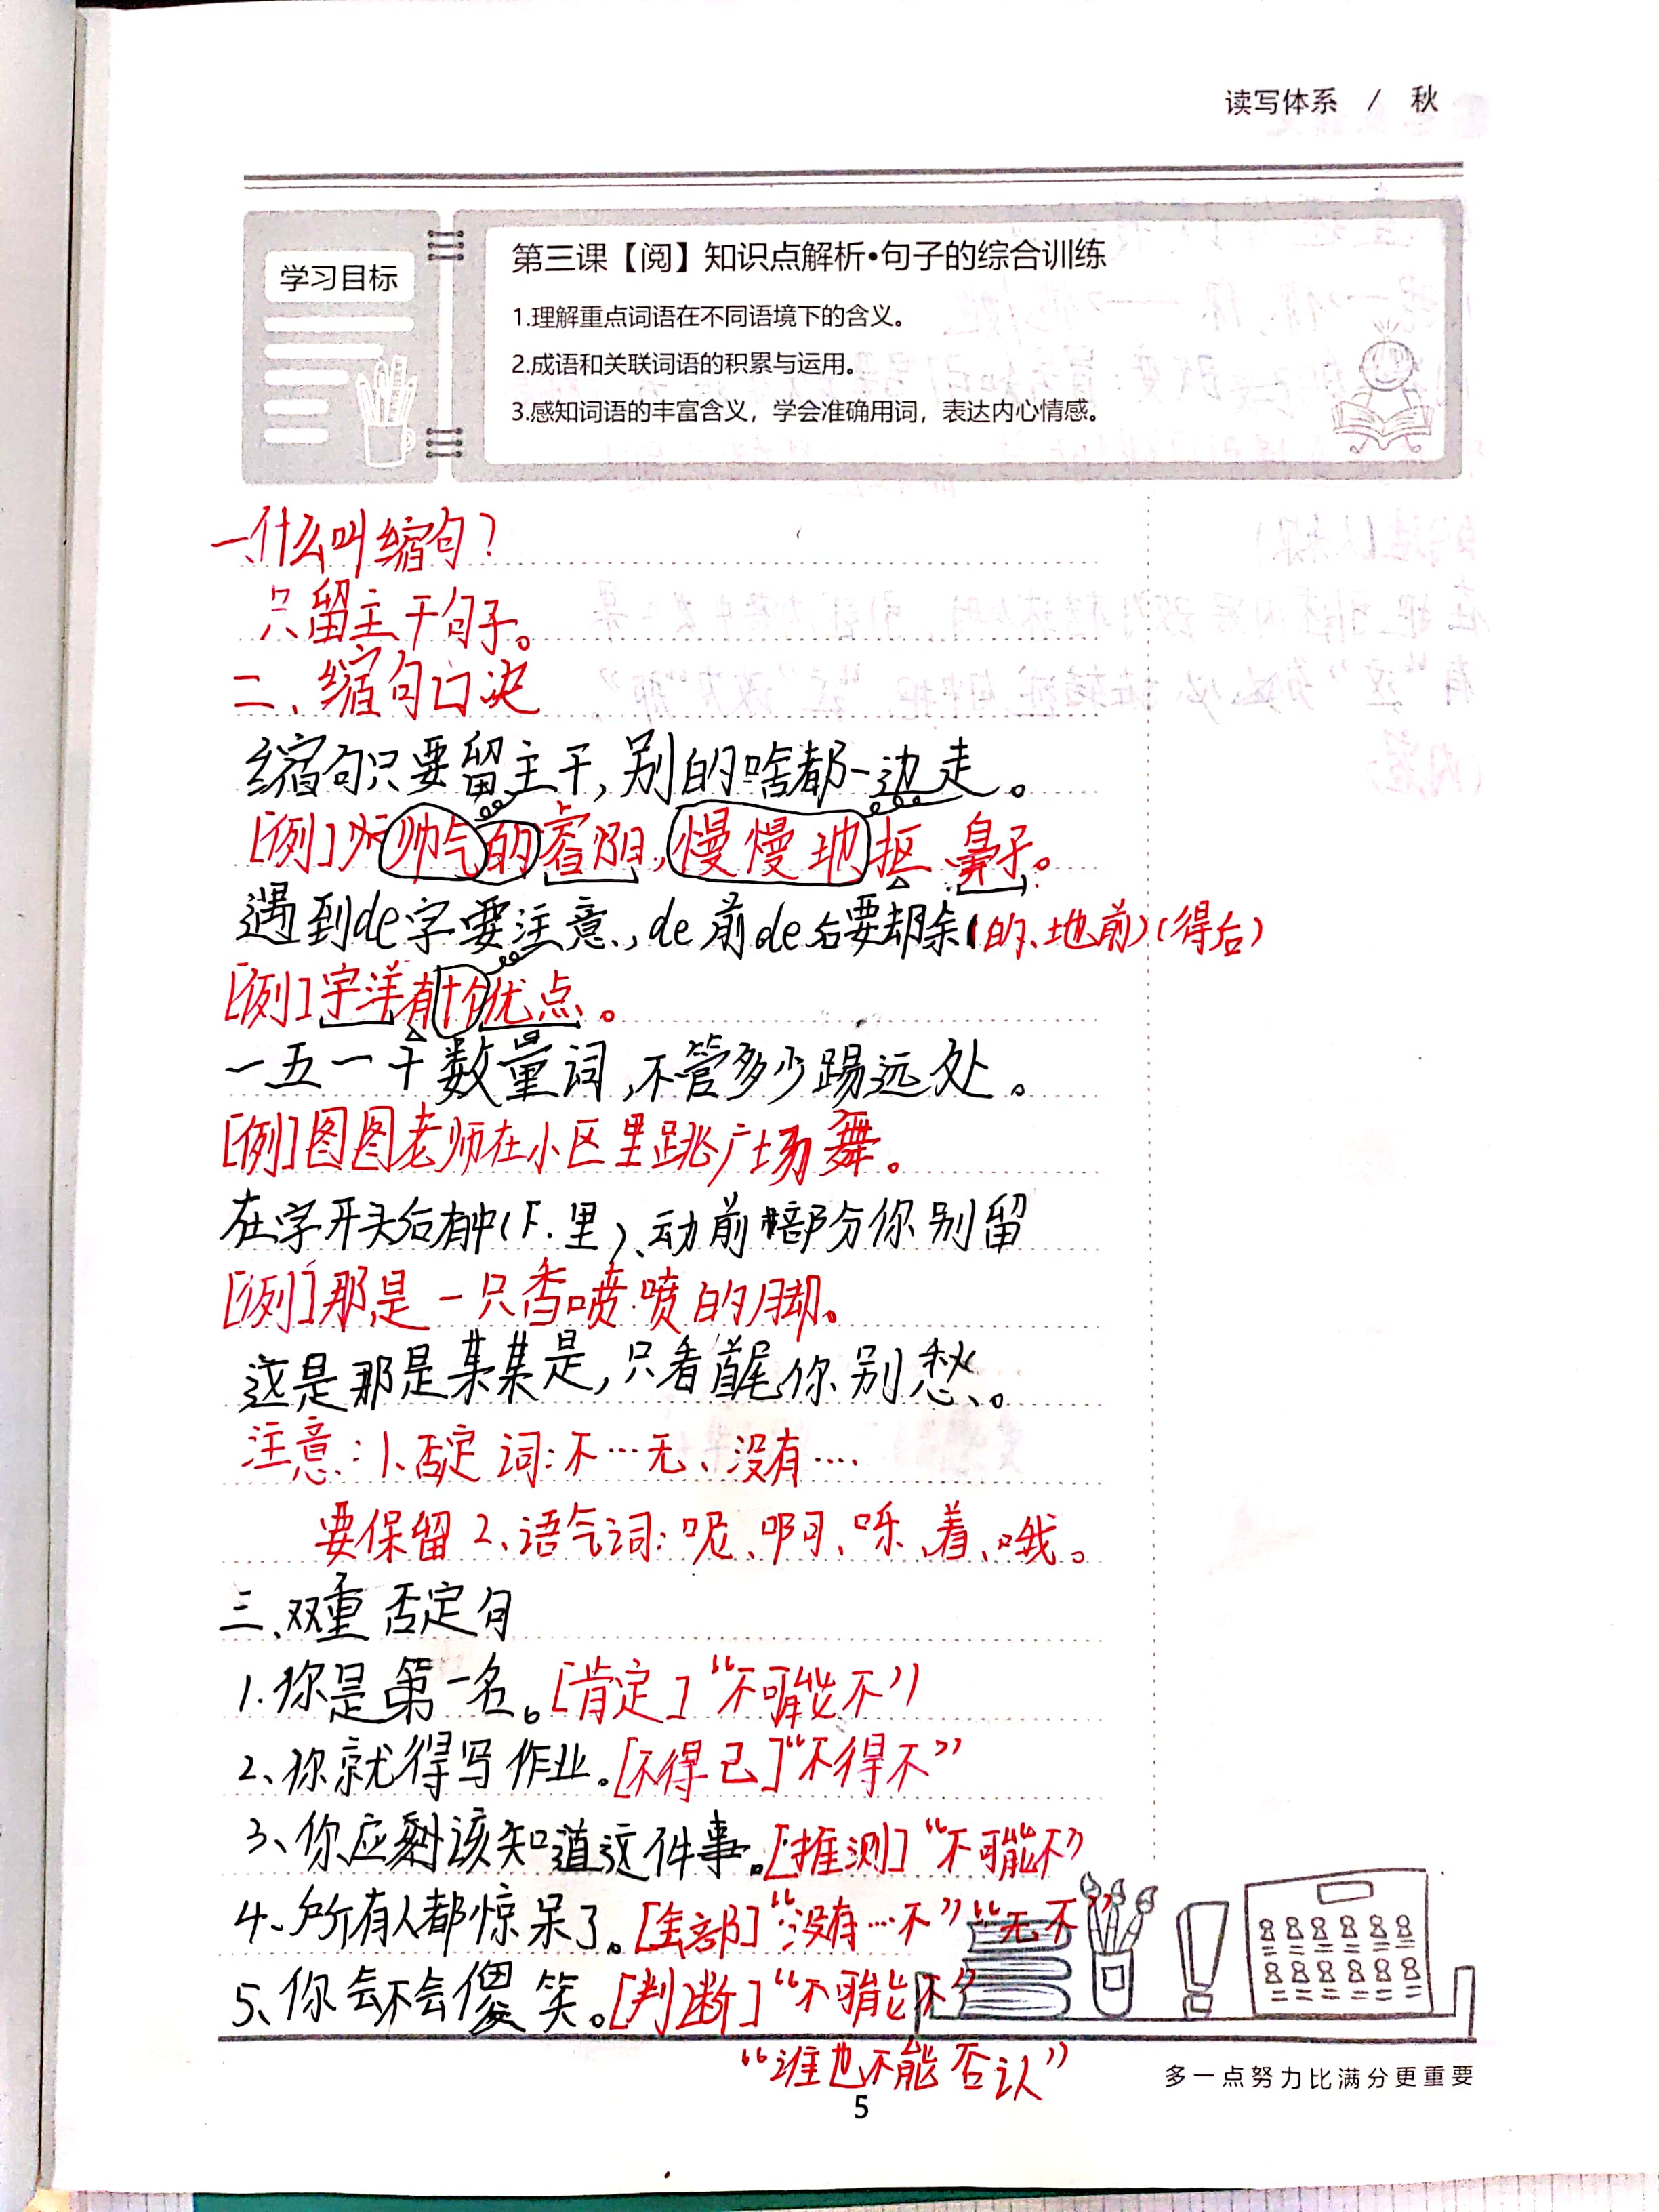 读写体系 / 秋
学习目标
第三课【阅】知识点解析•句子的综合训练
1.理解重点词语在不同语境下的含义。
2.成语和关联词语的积累与运用。
3.感知词语的丰富含义，学会准确用词，表达内心情感。
一、什么叫缩句？
只留主干句子。
二、缩句口决
缩句只要留主干，别的啥都一边走。
[例]帅气的睿阳，慢慢地抠鼻子。
遇到de字要注意，de前de后要却除(的、地前)(得后)
[例]宇洋有十个优点。
一五一十数量词，不管多少踢远处。
[例]图图老师在小区里跳广场舞。
在字开头后有中(下.里)、动前部分你别留
[例]那是一只香喷喷的脚。
这是那是某某是，只看首尾你别愁。
注意：1、否定词：不…无、没有…
要保留 2、语气词：呢、啊、呀、着、哦。
三、双重否定句
1.你是第一名。[肯定]“不可能不”
2、你就得写作业。[不得已]“不得不”
3、你应该知道这件事。[推测]“不可能不”
4、所有人都惊呆了。[全部]“没有…不”“无不”
5、你会不会傻笑。[判断]“不可能不”
“谁也不能否认”
多一点努力比满分更重要
5